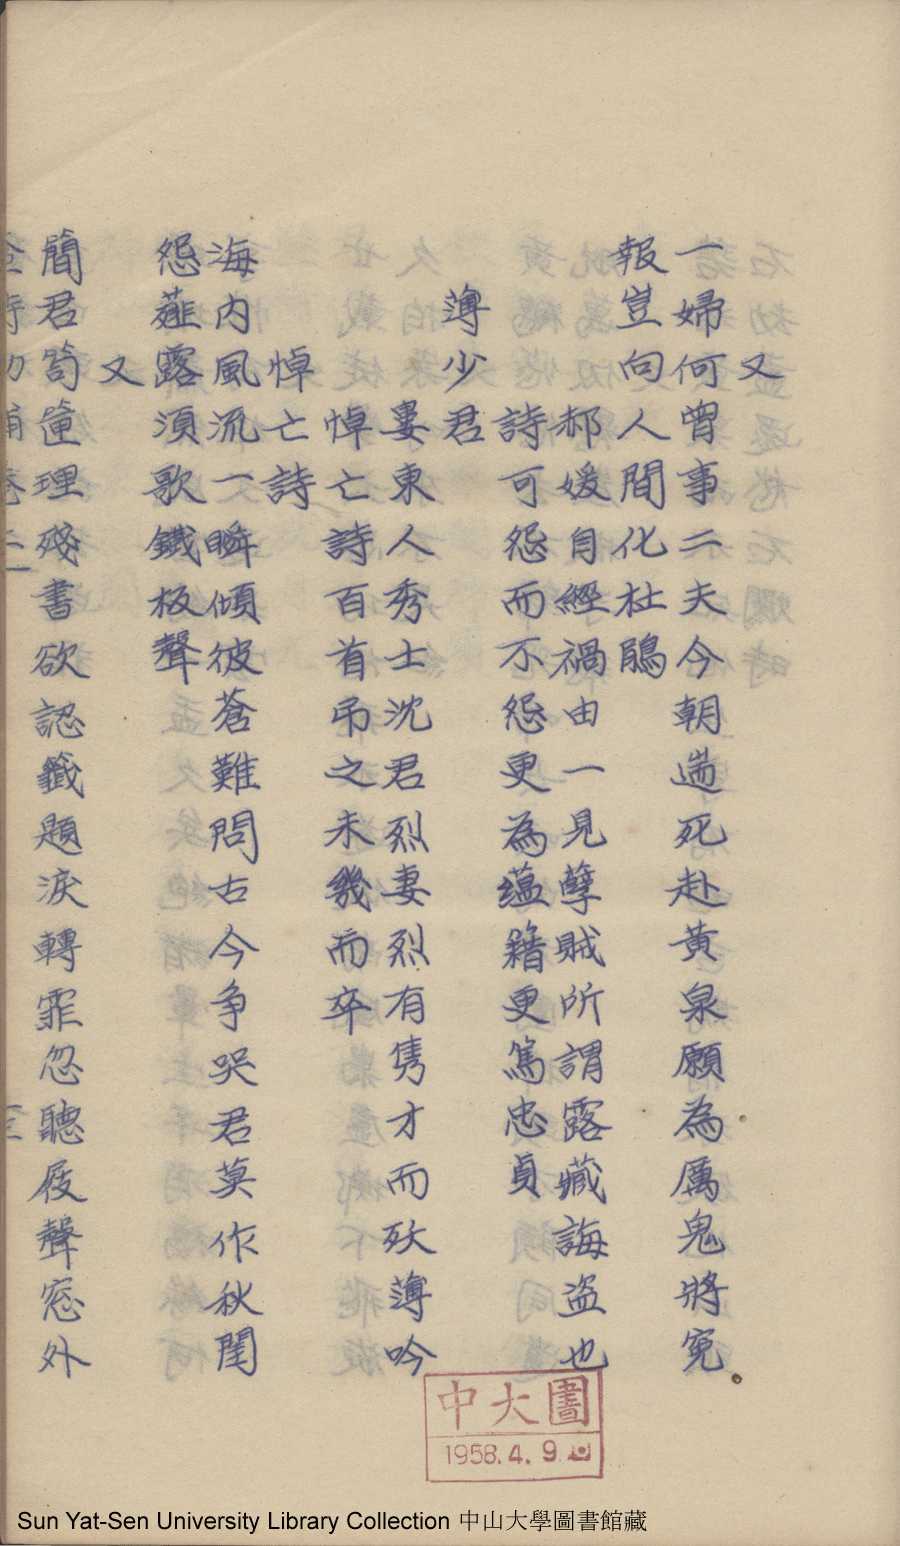 又
一婦何曾事二夫今朝耑死赴黃泉願為厲鬼將冤
報豈向人間化杜鵑
郝媛自經禍由一見孽賊所謂露藏誨盜也
詩可怨而不怨更為蘊籍更篤忠貞
薄少君
婁東人秀士沈君烈妻烈有雋才而殀薄吟
悼亡詩百首弔之未幾而卒
悼亡詩
海內風流一瞬傾彼蒼難問古今爭哭君莫作秋閨
怨薤露須歌鐵板聲
又
簡君笥篋理殘書欲認籤題淚轉霏忽聽屐聲窓外
中大圖
1958.4.9.
Sun Yat-Sen University Library Collection 中山大學圖書館藏